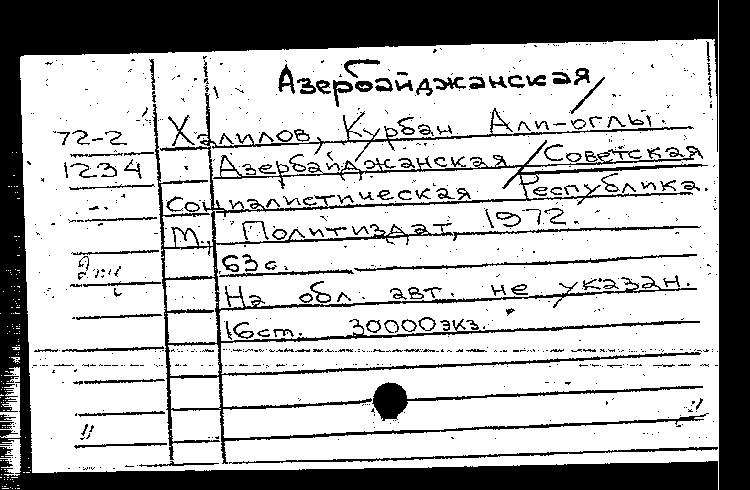 Азербайджанская
72-2 Халилов, Курбан Али-оглы.
1234 Азербайджанская Советская
социалистическая Республика.
М., Политиздат, 1972.
63 с.
На обл. авт. не указан.
16 cm. 30000 экз.